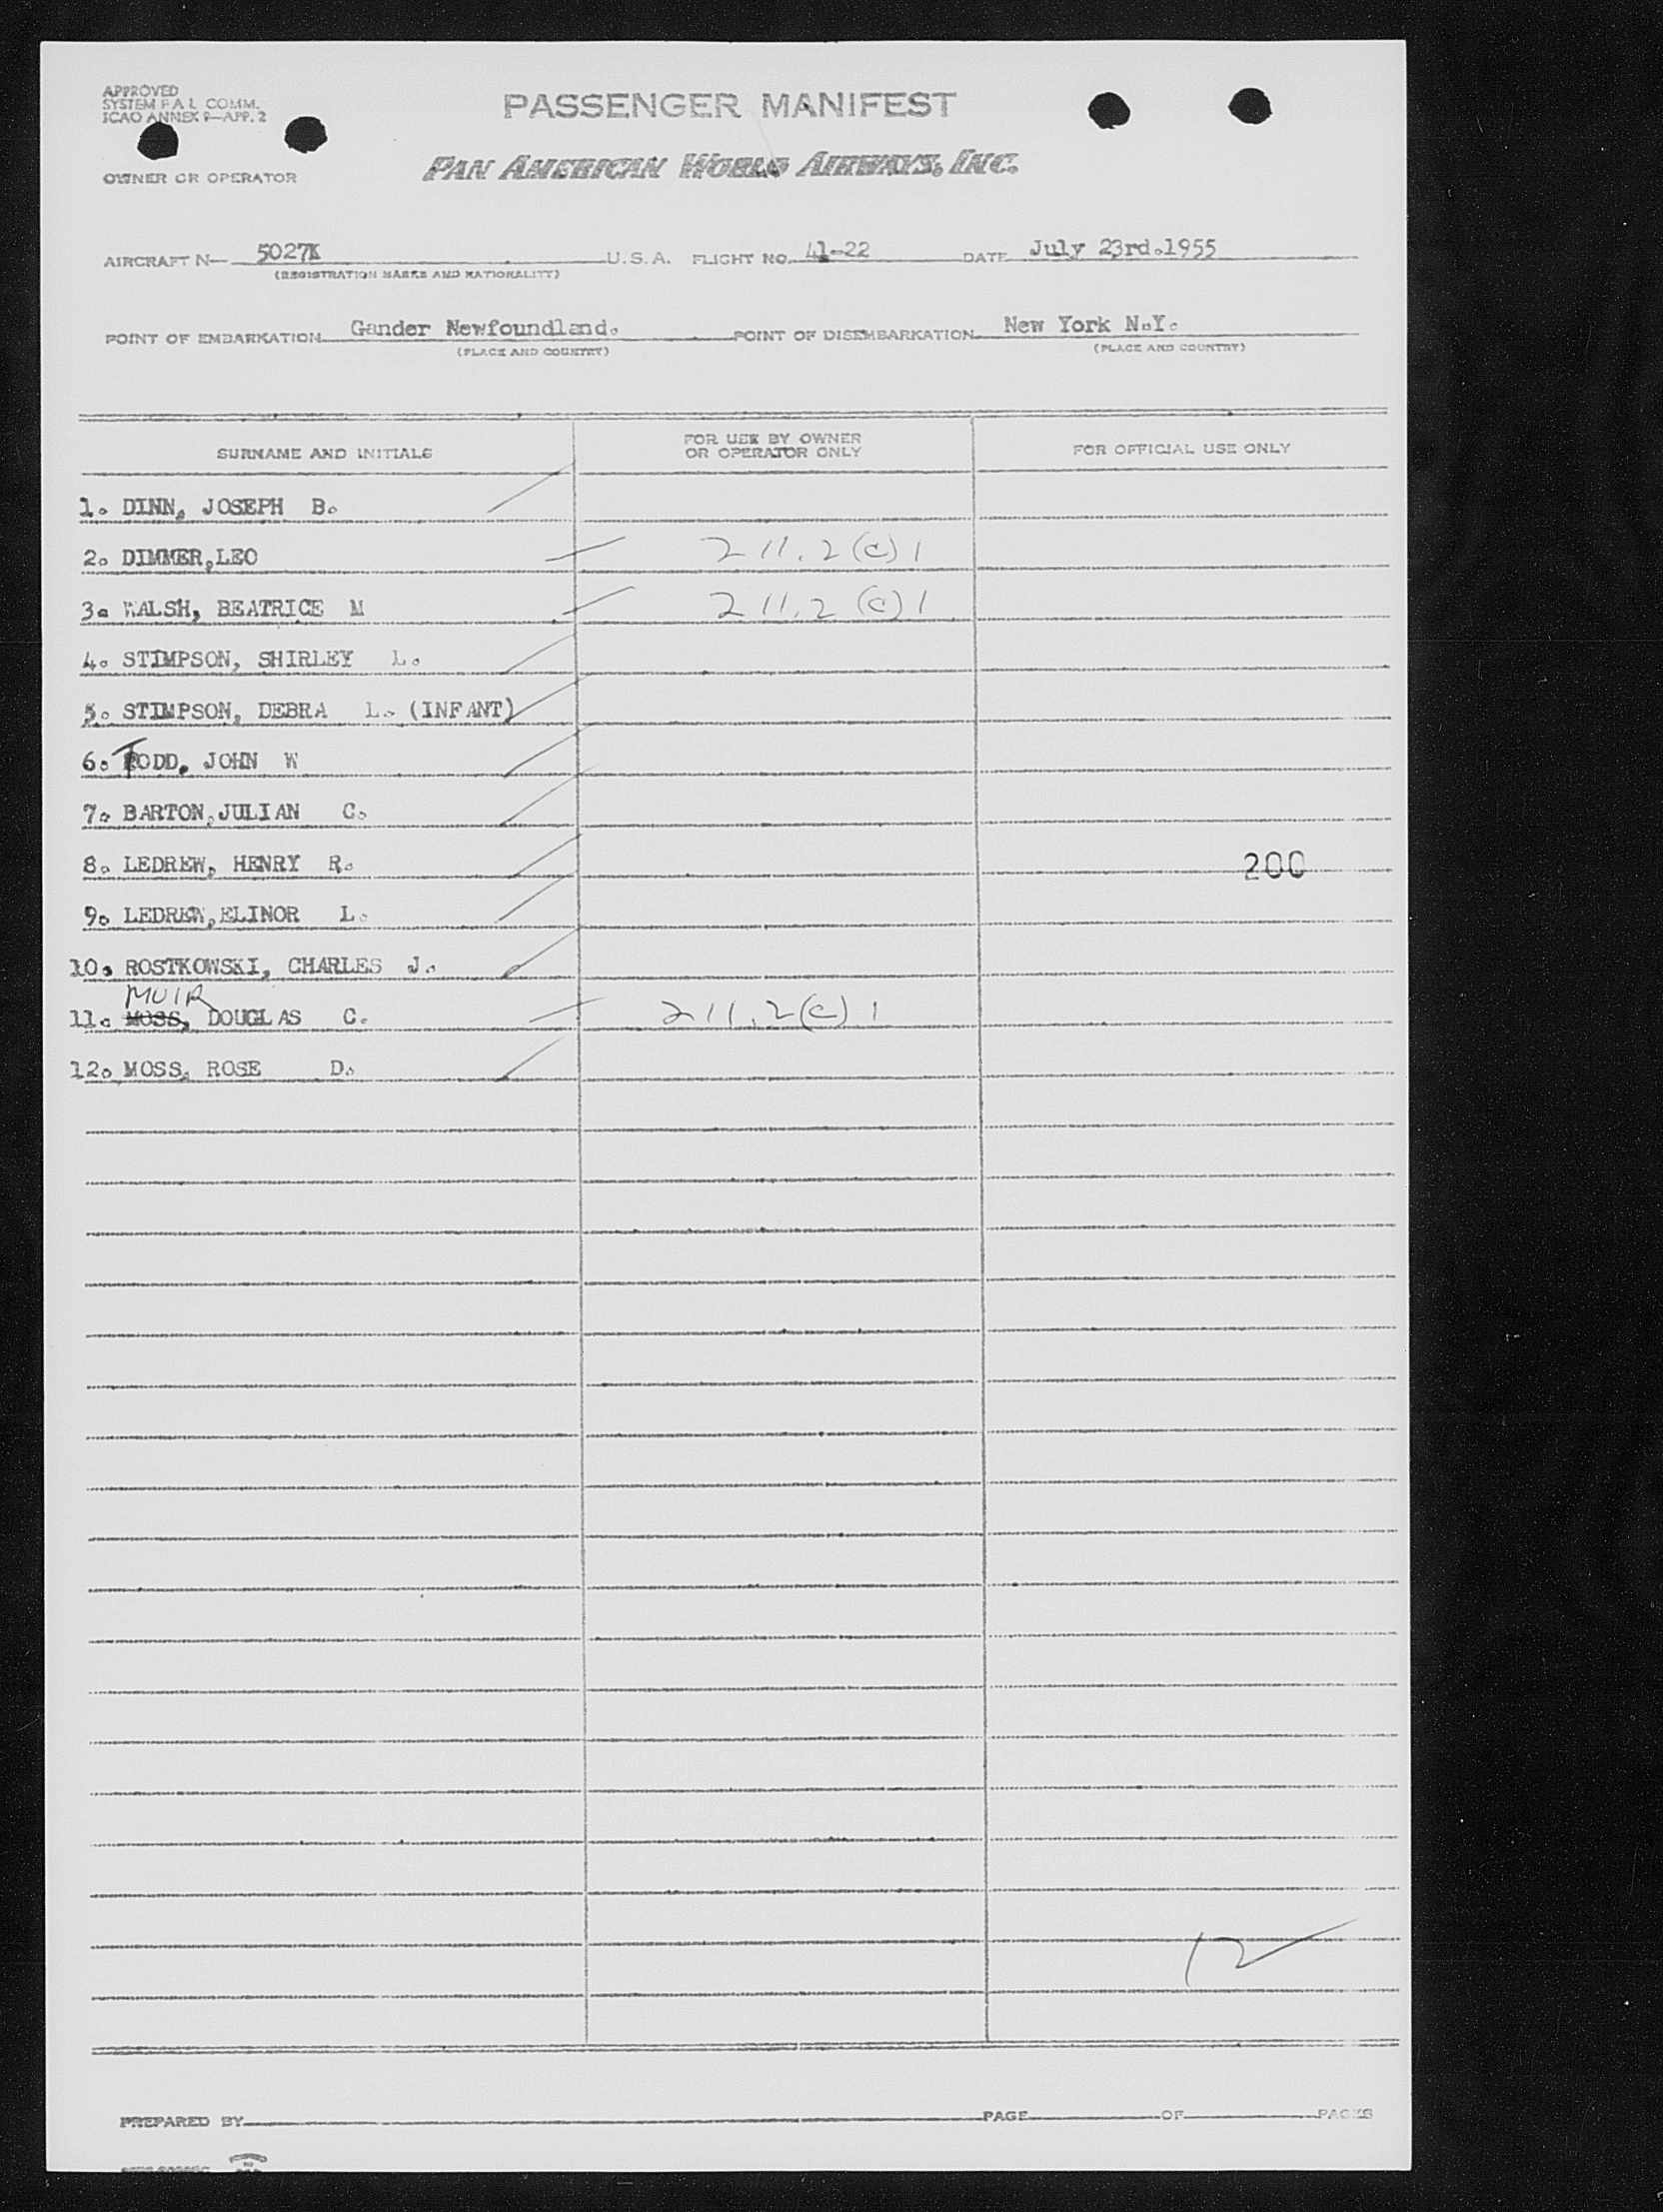 APPROVED
SYSTEM F A L COMM.
ICAO ANNEX 9—APP. 2
PASSENGER MANIFEST
OWNER OR OPERATOR
PAN AMERICAN WORLD AIRWAYS, INC.
AIRCRAFT N— 5027K U.S.A. FLIGHT NO. 41-22 DATE July 23rd.1955
(REGISTRATION MARKS AND NATIONALITY)
POINT OF EMBARKATION Gander Newfoundland. POINT OF DISEMBARKATION New York N.Y.
(PLACE AND COUNTRY) (PLACE AND COUNTRY)
SURNAME AND INITIALS FOR USE BY OWNER OR OPERATOR ONLY FOR OFFICIAL USE ONLY
1. DINN, JOSEPH B.
2. DIMMER,LEO 211.2(c)1
3. WALSH, BEATRICE M 211.2(c)1
4. STIMPSON, SHIRLEY L.
5. STIMPSON, DEBRA L. (INFANT)
6. TODD, JOHN W
7. BARTON,JULIAN C.
8. LEDREW, HENRY R. 200
9. LEDREW,ELINOR L.
10. ROSTKOWSKI, CHARLES J.
MUIR
11. MOSS, DOUGLAS C. 211.2(c)1
12. MOSS, ROSE D.
12
PREPARED BY PAGE OF PAGES